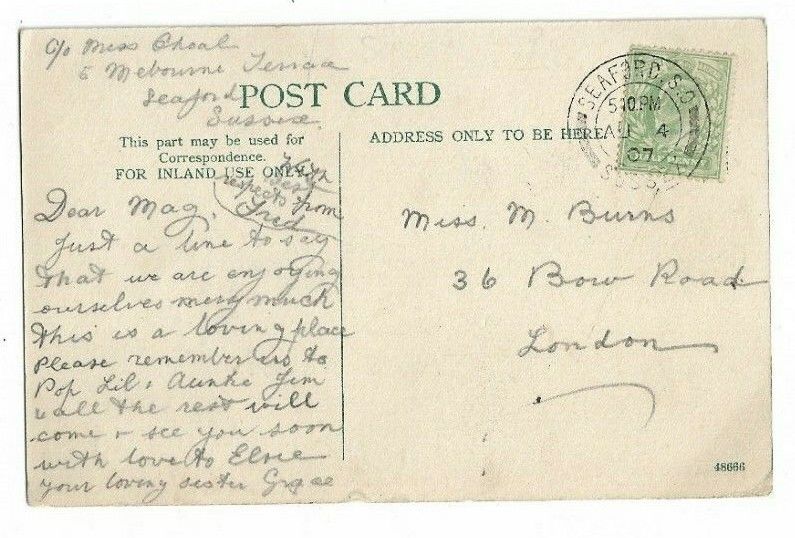 c/o Miss Choal
6 Mebourne Terrace
Seaford
Sussex
POST CARD
This part may be used for
Correspondence.
FOR INLAND USE ONLY.
ADDRESS ONLY TO BE HERE
SEAFORD. S.O
5 10. PM
AU 4
07
SUSSEX
With
best
respects from
Fred
Dear Mag,
Just a line to say
that we are enjoying
ourselves very much
this is a loving place
Please remember us to
Pop Lil & Auntie Jim
& all the rest will
come & see you soon
with love to Elsie
your loving sister Grace
Miss. M. Burns
36 Bow Road
London
48666